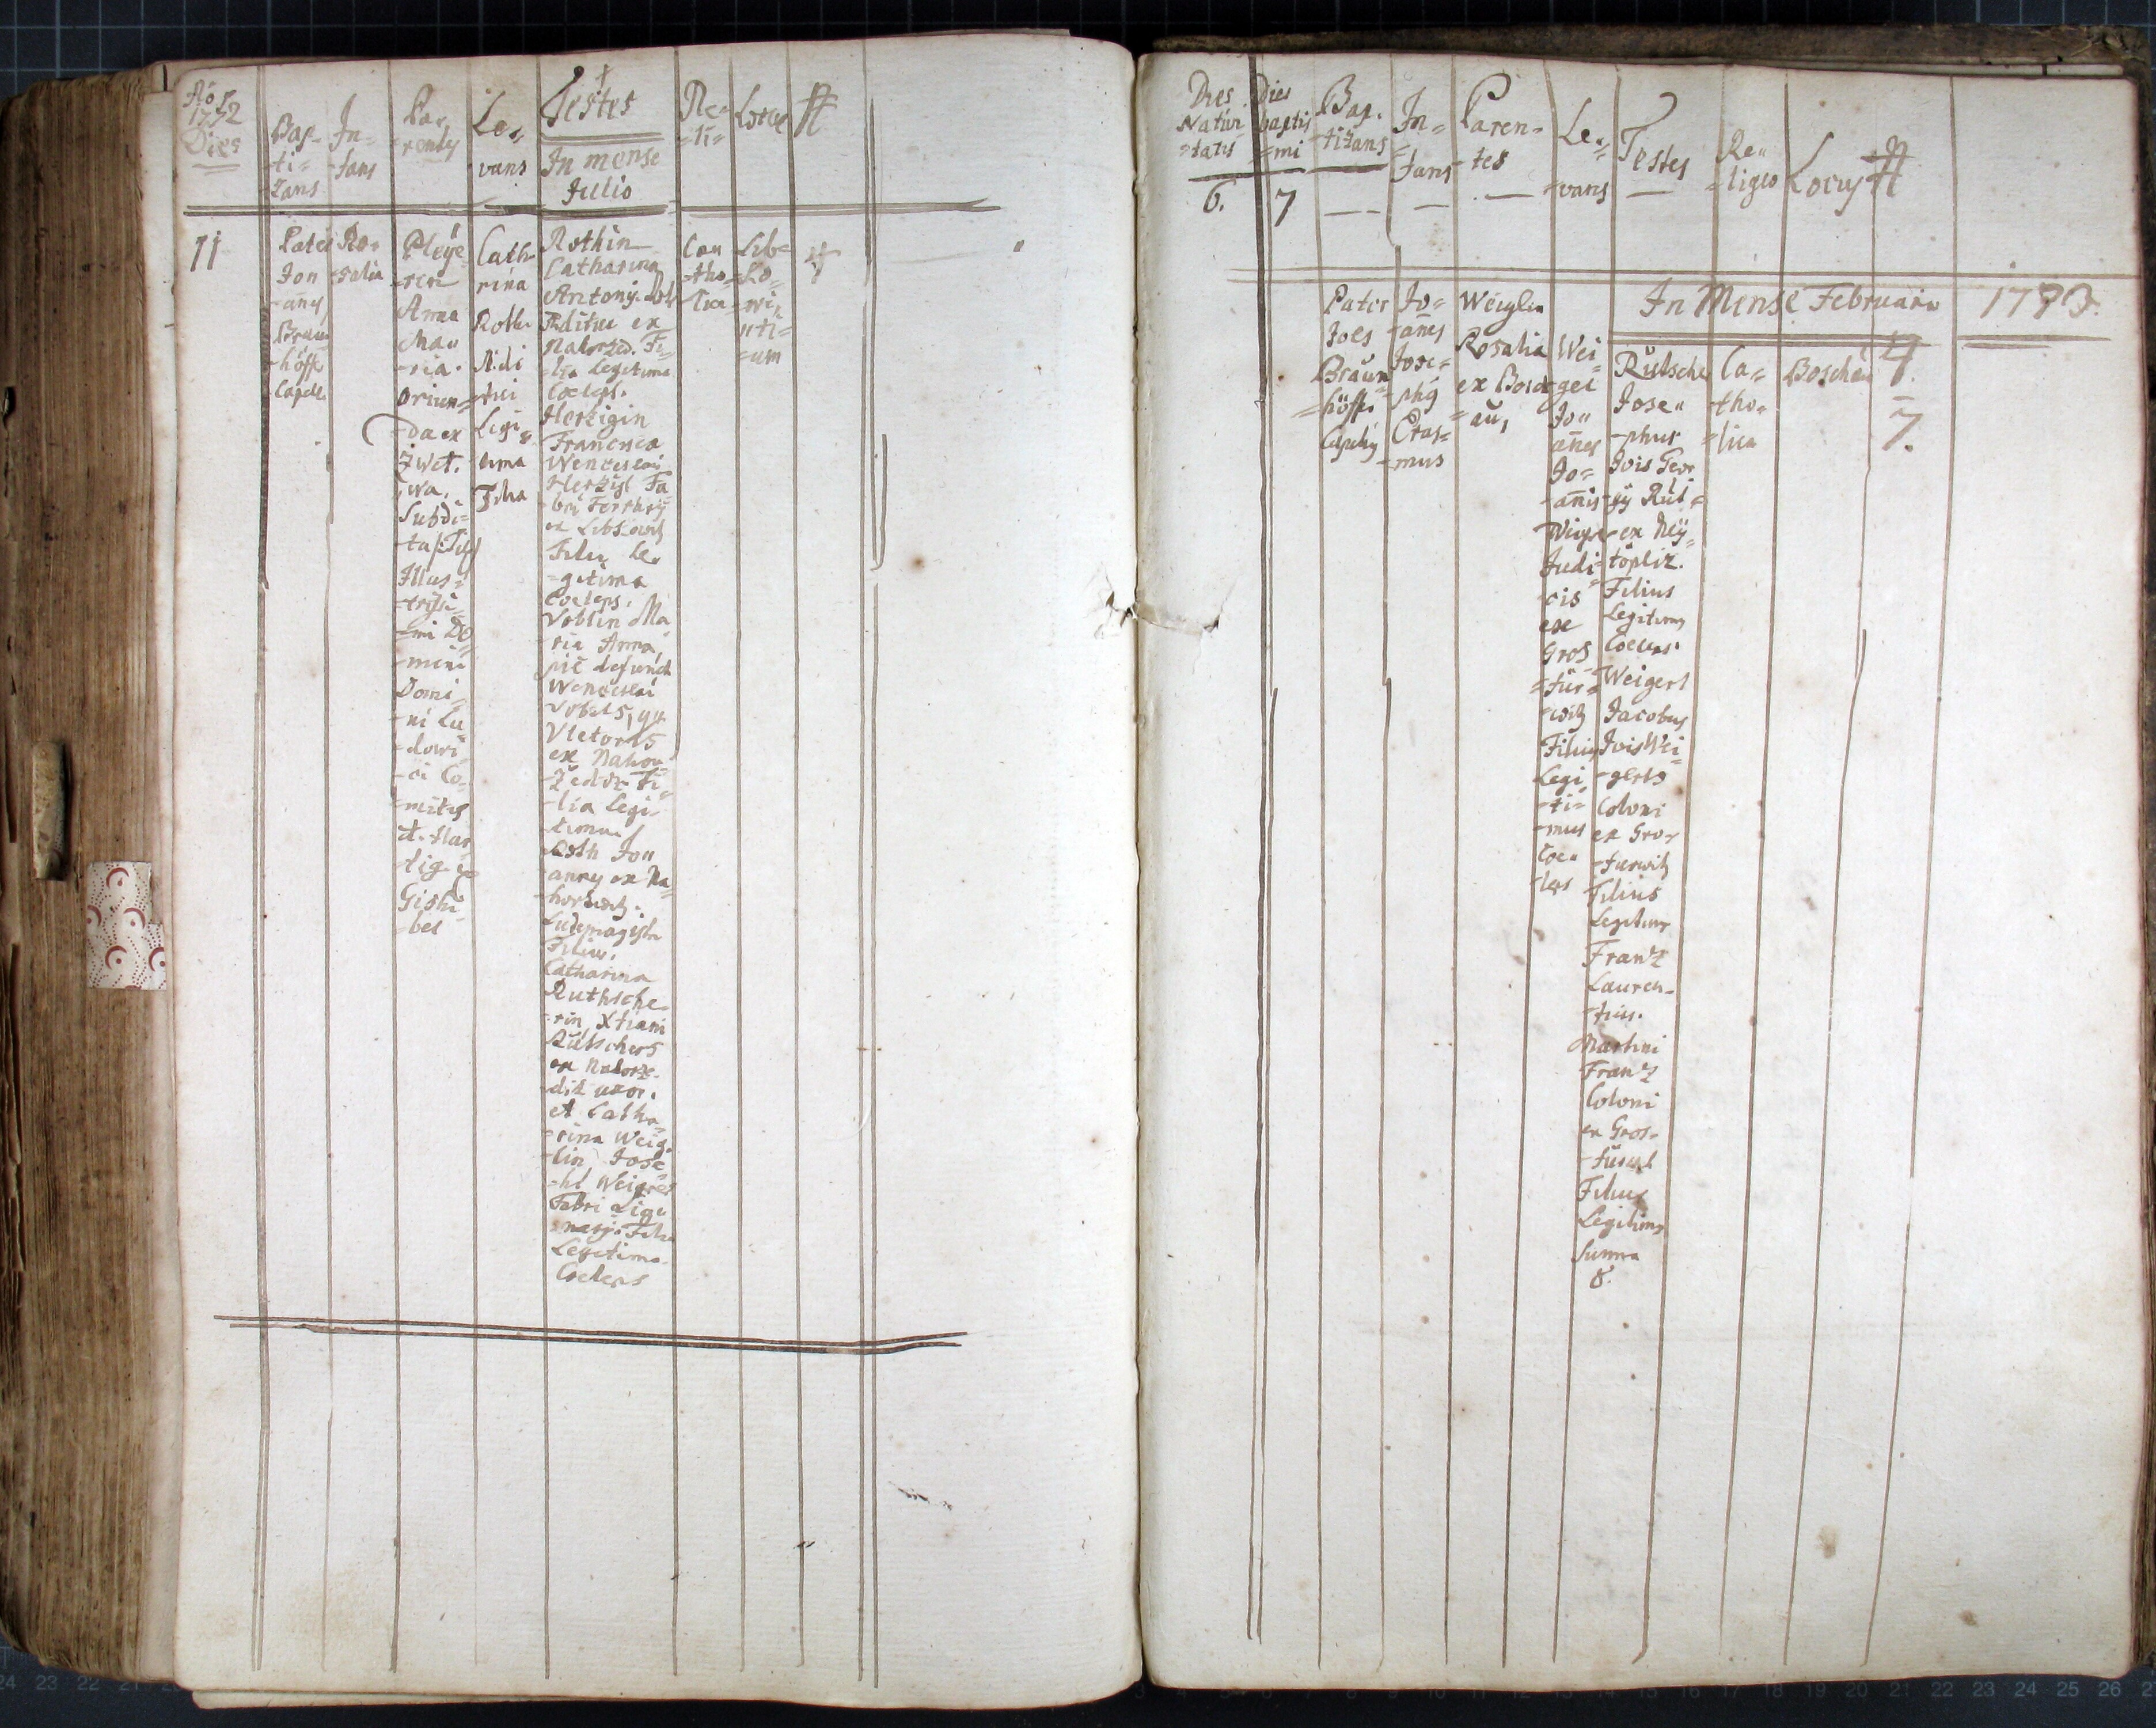 Aõ
1772
Dies
Bap-
-ti-
-zans
In-
-fans
Pa-
-rentes
Le-
vans
Testes
In mense
Julio
Re-
-li-
Locus
11
Pater
Jon
-anes
Braun
-höff
Capell.
Ro-
-salia
Pleÿe
-rin
Anna
Ma-
-ria.
oriun-
-da ex
Zwet-
-wa.
Subdi-
-ta
Illus-
-trissi-
-mi Do
-mini
Domi-
-ni Lu
-dowi-
-ci Co-
-mitis
d. Har
-tig
Gishi-
-bel
Cath-
rina
Roth-
Ädi
-tui
Legi-
-tima
Filia
Rothin
Catharina
Antonÿ Roth
Æditui ex
Nahorzed. Fi-
-lia Legitima
Coeleps.
Hertzigin
Francisca
Wenceslai
Hertzigl Fa
-bri
ex Libkowitz
Filia Le-
-gitima
Coeleps.
Voblin Ma
ria Anna,
piè defuncti
Wenceslai
Vobels,
Vietoris
ex Nahor-
-zeditz Fi-
-lia Legi-
-tima
Roth Jon
-annes ex Na-
-hortzitz.
Ludimagistri
Filius.
Catharina
Ruthsche-
-rin Xtiani
Rütschers
ex Nahorze-
-ditz uxor.
et Catha-
-rina Weig-
-lin Jose-
-phi Weigels
Fabri Lig-
-narÿ Filia
Legitima
Coeleps
Ca
-tho-
-lica
Lib-
-ko-
-wi-
-ti-
-um
Dies
Nativi-
-tatis
6.
Dies
baptis
-mi
7
Bap-
-tizans
In-
-fans
Paren-
-tes
Le-
-vans
Testes
Re-
-ligio
Locus
In Mense Februario 1773.
Pater
Joes
Braun-
-höff.
Capellanus
Jo-
-anes
Jose-
-phus
Eras-
-mus
Weiglin
Rosalia
ex Bosch-
-au,
Wei-
gel
Jo-
anes
Jo-
-anis
Weigel
Judi-
cis
ex
Gros
-Fur-
-witz
Filius
Legi
-ti-
-mus
Coe-
-leps
Rütscher
Jose-
-phus
Jois Geor
-gÿ Rüt-
ex Neÿ-
töpliz.
Filius
Legitimus
Coeleps.
Weigerl
Jacobus
Jois Wei-
-gerls
Coloni
ex Gros-
-furwitz
Filius
Legitimus
Frantz
Lauren-
-tius.
Martini
Frantz
Coloni
ex Gros-
-furwit
Filius
Legitimus
Summa
8.
Ca-
-tho-
-lica
Boschau
7.